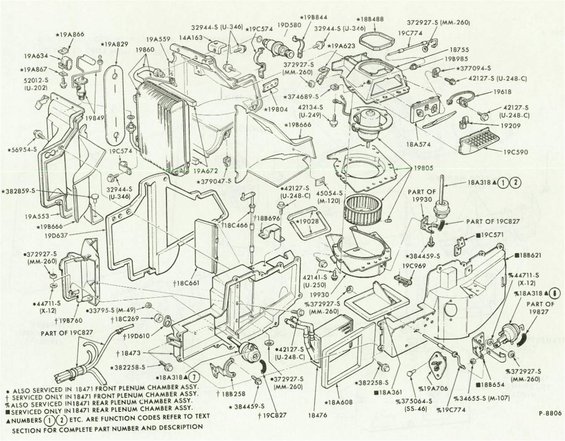 *19A866
*19A829
19A634
*19A867
52012-S
(U-202)
19849
*56954-S
*382859-S
19A553
*19B666
19D637
*372927-S
(MM-260)
*44711-S
(X-12)
†19B760
PART OF
19C827
19A559
19860
14A163
32944-S (U-346)
*19C574
19D580
*19B844
*19A623
372927-S
(MM-260)
*374689-S
*19804
42134-S
(U-249)
*19B666
19C574
19A672
*379047-S
32944-S
(U-346)
*188488
372927-S
(MM-260)
19C774
18755
19B985
*377094-S
42127-S (U-248-C)
19618
42127-S
(U-248-C)
19209
18A574
19C590
19805
18A318▲ 1 2
*42127-S
(U-248-C)
45054-S
(M-120)
PART OF
19930
*PART OF 19C827
*19C571
■18B621
†18C466
†18B696
*19028
†18C661
*384459-S
19C969
42141-S
(U-250)
19930
%372927-S
(MM-260)
%44711-S
(X-12)
%18A318▲ 8
PART OF
19827
*33795-S (M-49)
†18C269
†19D610
†18473
*382258-S
*18A318▲ 7
†18B258
*384459-S
†19C827
*42127-S
(U-248-C)
*372927-S
(MM-260)
18476
*18A608
*382258-S
■18A361
%375064-S
(SS-46)
%19A706
%19C774
%34655-S (M-107)
■18B654
%372927-S
(MM-260)
* ALSO SERVICED IN 18471 FRONT PLENUM CHAMBER ASSY.
† SERVICED ONLY IN 18471 FRONT PLENUM CHAMBER ASSY.
% ALSO SERVICED IN 18471 REAR PLENUM CHAMBER ASSY.
■ SERVICED ONLY IN 18471 REAR PLENUM CHAMBER ASSY.
▲NUMBERS 1 2 ETC. ARE FUNCTION CODES REFER TO TEXT
SECTION FOR COMPLETE PART NUMBER AND DESCRIPTION
P-8806